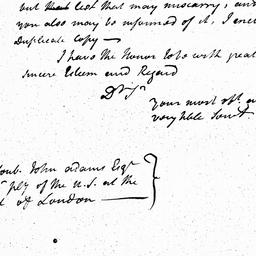 but lest that may miscarry, and
you also may be informed of it, I enc
Duplicate Copy —
I have the Honor to be with great
Sincere Esteem and Regard
Dr Sir
your most obt. a
very hble Servt.
oub. John Adams Esqr
ply of the U.S. at the
of London —